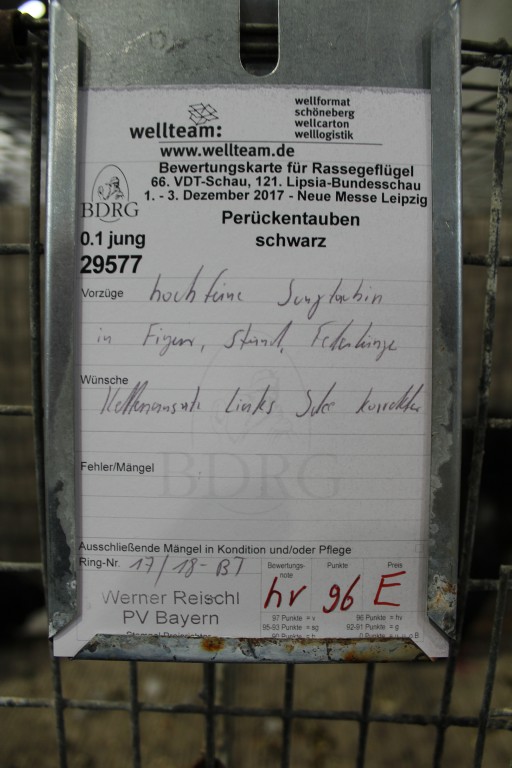 wellteam:
wellformat
schöneberg
wellcarton
welllogistik
www.wellteam.de
Bewertungskarte für Rassegeflügel
66. VDT-Schau, 121. Lipsia-Bundesschau
1. - 3. Dezember 2017 - Neue Messe Leipzig
BDRG
Perückentauben
0.1 jung
schwarz
29577
Vorzüge hochfeine Jungtäubin
in Figur, Stand, Federlänge
Wünsche
Kettenansatz Links korrekter
Fehler/Mängel
BDRG
Ausschließende Mängel in Kondition und/oder Pflege
Ring-Nr. 17/18-BT
Bewertungs-
note
Punkte
Preis
hv 96 E
Werner Reischl
PV Bayern
97 Punkte = v 96 Punkte = hv
95-93 Punkte = sg 92-91 Punkte = g
90 Punkte = b 0 Punkte = u